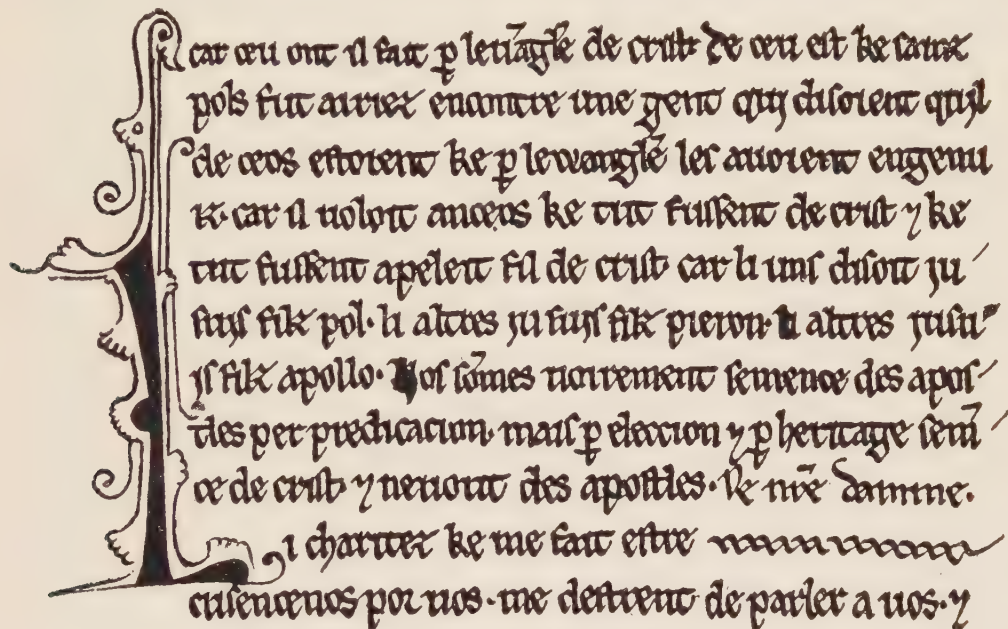 car ceu ont il fait p̱ leuãgle de crist· De ceu est ke sainz
pols fut airiez encontre une gent qui disoient quil
de ceos estoient ke p̱ lewangle les auoient engenu
iz· car il uoloit anceos ke tut fussent de crist ⁊ ke
tut fussent apeleit fil de crist· car li uns disoit ju
suys filz pol· li altres ju suys filz pieron· li altres jusu
ys filz apollo· Nos sõmes uoirement semence des apos
tles per predicacion· mais p̱ eleccion ⁊ p̱ heritage semẽ
ce de crist· ⁊ neniout des apostles· De nr̃e damme·
Li charitez ke me fait estre
cusencenos por uos· me destrent de parler a uos· ⁊